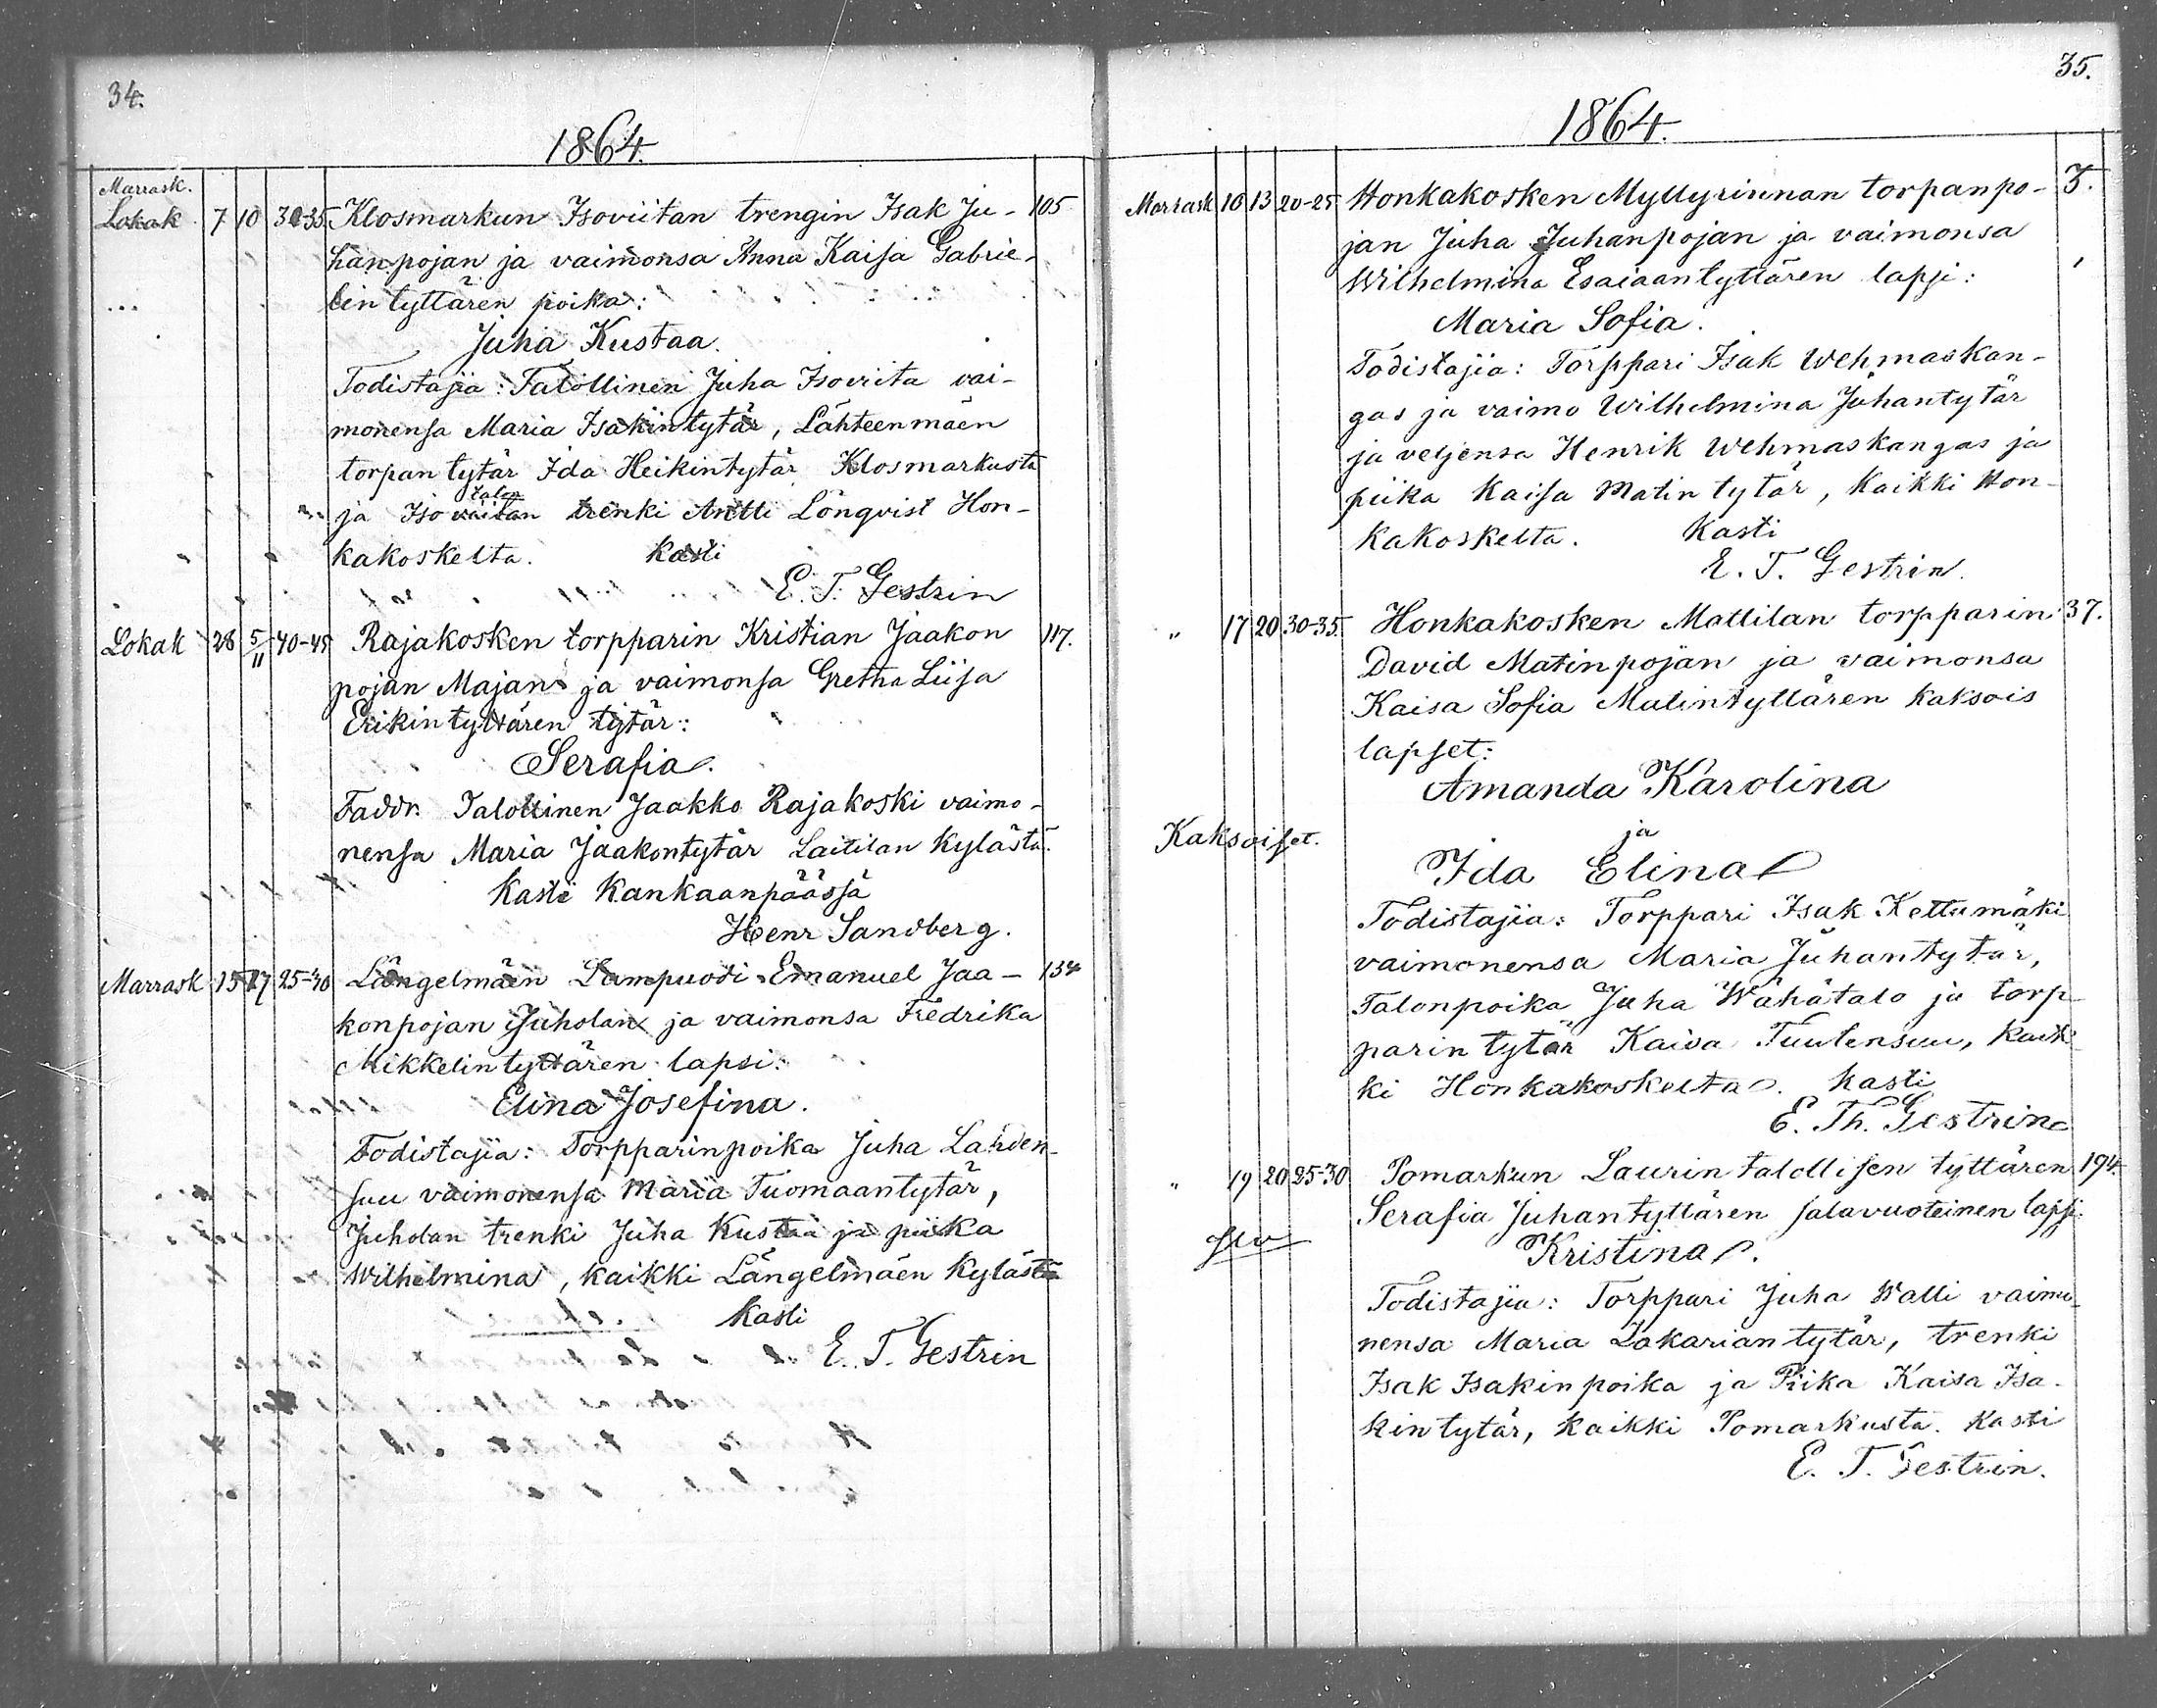 34.
1864.
Marrask.
Lokak. 7 10 30-35. Klosmarkun Isoviitan trengin Isak Ju- 105
hanpojan ja vaimonsa Anna Kaisa Gabrie-
lin tyttären poika:
Juha Kustaa.
Todistajia: Talollinen Juha Isoviita vai-
monensa Maria Isakintytär, Lähteenmäen
torpan tytär Ida Heikintytär Klosmarkusta
talon
ja Isoviitan trenki Antti Lönqvist Hon-
kakoskelta. Kasti
E. T. Gestrin
Lokak 28 5/11 40-45 Rajakosken torpparin Kristian Jaakon 117.
pojan Majan ja vaimonsa Gretha Liisa
Erikintyttären tytär:
Serafia.
Faddr. Talollinen Jaakko Rajakoski vaimo-
nensa Maria Jaakontytär Laitilan kylästä.
Kasti Kankaanpäässä
Henr Sandberg.
Marrask 15 17 25-30 Längelmäen Lampuodi Emanuel Jaa- 134
konpojan Juholan ja vaimonsa Fredrika
Mikkelintyttären lapsi:
Elina Josefina.
Todistajia: Torpparinpoika Juha Lahden-
suu vaimonensa Maria Tuomaantytär,
Juholan trenki Juha Kustaa ja piika
Wilhelmina, kaikki Längelmäen kylästä
Kasti
E. T. Gestrin
35.
1864.
Marrask 10 13 20-25 Honkakosken Myllyrinnan torpanpo- 3.
jan Juha Juhanpojan ja vaimonsa
Wilhelmina Esaiaantyttären lapsi:
Maria Sofia.
Todistajia: Torppari Isak Wehmaskan-
gas ja vaimo Wilhelmina Juhantytär
ja veljensa Henrik Wehmaskangas ja
piika Kaisa Matin tytär, kaikki Hon-
kakoskelta. Kasti
E. T. Gestrin.
" 17 20 30-35. Honkakosken Mattilan torpparin 37.
David Matinpojan ja vaimonsa
Kaisa Sofia Matintyttären kaksois
lapset:
Amanda Karolina
ja
Kaksoiset.
Ida Elina
Todistajia: Torppari Isak Kettumäki
vaimonensa Maria Juhantytär,
Talonpoika Juha Wähätalo ja torp-
parin tytär Kaisa Tuulensuu, kaik-
ki Honkakoskelta. Kasti
E. Th. Gestrin
" 19 20 25-30 Pomarkun Laurin talollisen tyttären 194.
Serafia Juhantyttären salavuoteinen lapsi.
Kristina.
Todistajia: Torppari Juha Walli vaimo-
nensa Maria Zakariantytär, trenki
Isak Isakinpoika ja Piika Kaisa Isa-
kintytär, kaikki Pomarkusta. Kasti
E. T. Gestrin.